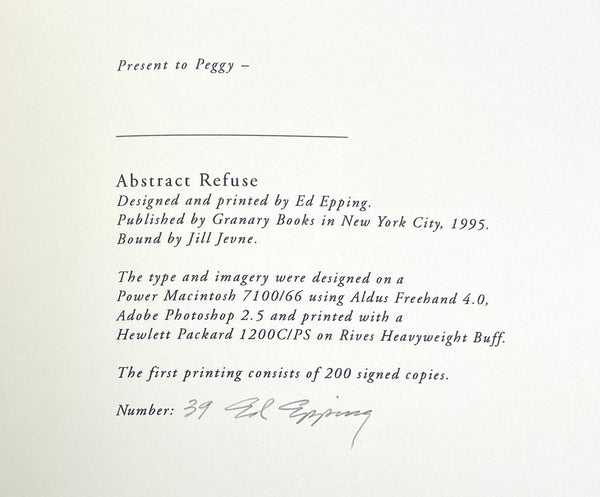 Present to Peggy –
Abstract Refuse
Designed and printed by Ed Epping.
Published by Granary Books in New York City, 1995.
Bound by Jill Jevne.
The type and imagery were designed on a
Power Macintosh 7100/66 using Aldus Freehand 4.0,
Adobe Photoshop 2.5 and printed with a
Hewlett Packard 1200C/PS on Rives Heavyweight Buff.
The first printing consists of 200 signed copies.
Number: 39 Ed Epping